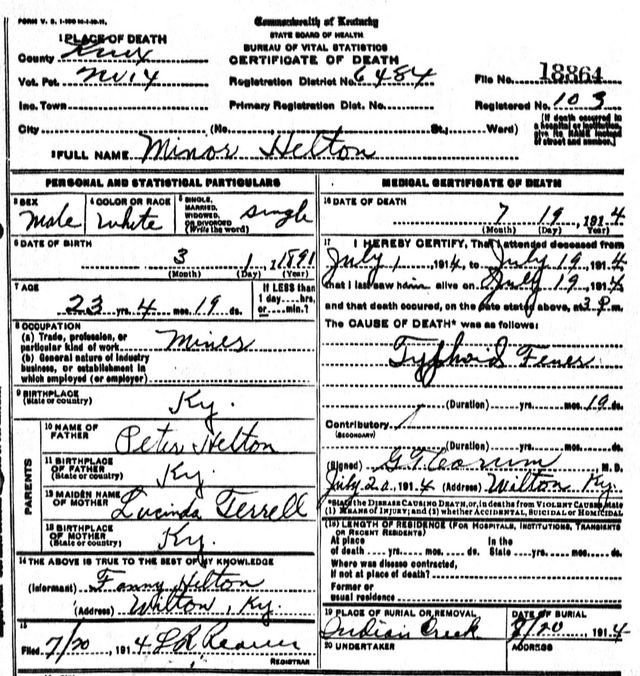 FORM V. S. 1
Commonwealth of Kentucky
STATE BOARD OF HEALTH
BUREAU OF VITAL STATISTICS
CERTIFICATE OF DEATH
1 PLACE OF DEATH
County Knox
Vot. Pct. No 14
Registration District No. 6484
File No. 18864
Inc. Town
Primary Registration Dist. No.
Registered No. 103
City (No. St., Ward)
(If death occurred in a hospital or institution, give its NAME instead of street and number.)
2 FULL NAME Minor Helton
PERSONAL AND STATISTICAL PARTICULARS
3 SEX Male
4 COLOR OR RACE White
5 SINGLE, MARRIED, WIDOWED, OR DIVORCED (Write the word) Single
6 DATE OF BIRTH 3 1, 1891
(Month) (Day) (Year)
7 AGE 23 yrs. 4 mos. 19 ds.
If LESS than 1 day....hrs. or....min.?
8 OCCUPATION
(a) Trade, profession, or particular kind of work Miner
(b) General nature of industry business, or establishment in which employed (or employer)
9 BIRTHPLACE (State or country) Ky.
PARENTS
10 NAME OF FATHER Peter Helton
11 BIRTHPLACE OF FATHER (State or country) Ky.
12 MAIDEN NAME OF MOTHER Lucinda Terrell
13 BIRTHPLACE OF MOTHER (State or country) Ky.
14 THE ABOVE IS TRUE TO THE BEST OF MY KNOWLEDGE
(Informant) Fanny Helton
(Address) Wilton, Ky.
15
Filed 7/20, 1914 L R
REGISTRAR
MEDICAL CERTIFICATE OF DEATH
16 DATE OF DEATH
7 19, 1914
(Month) (Day) (Year)
17 I HEREBY CERTIFY, That I attended deceased from
July 1, 1914, to July 19, 1914,
that I last saw him alive on July 19, 1914,
and that death occurred, on the date stated above, at 3 P.m.
The CAUSE OF DEATH* was as follows:
Typhoid Fever
(Duration) yrs. mos. 19 ds.
Contributory
(SECONDARY)
(Duration) yrs. mos. ds.
(Signed) M. D.
July 20, 1914 (Address) Wilton Ky.
*State the DISEASE CAUSING DEATH, or, in deaths from VIOLENT CAUSES, state
(1) MEANS OF INJURY; and (2) whether ACCIDENTAL, SUICIDAL or HOMICIDAL
(18) LENGTH OF RESIDENCE (FOR HOSPITALS, INSTITUTIONS, TRANSIENTS OR RECENT RESIDENTS)
At place of death yrs. mos. ds. In the State yrs. mos. ds.
Where was disease contracted, if not at place of death?
Former or usual residence
19 PLACE OF BURIAL OR REMOVAL Indian Creek
DATE OF BURIAL 7/20, 1914
20 UNDERTAKER
ADDRESS